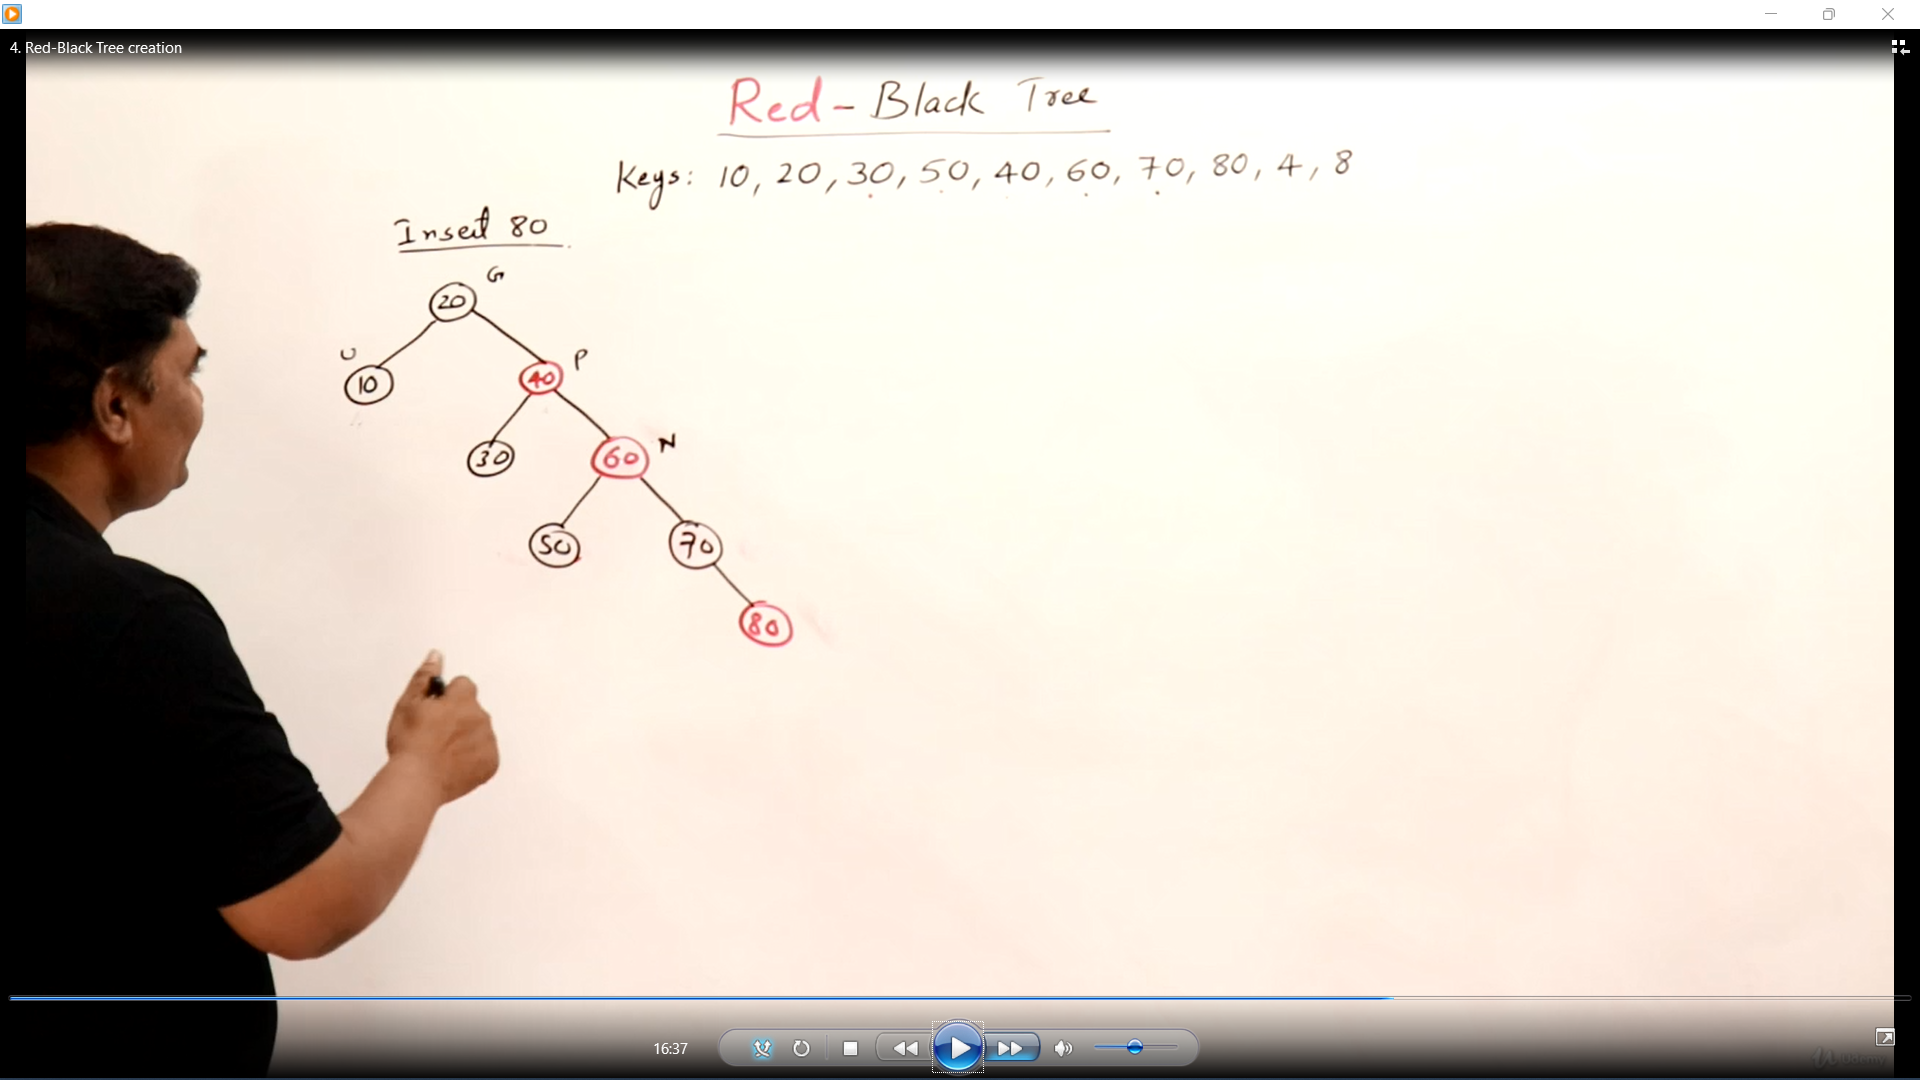 4. Red-Black Tree creation
Red - Black Tree
Keys: 10, 20, 30, 50, 40, 60, 70, 80, 4, 8
Insert 80
G
20
U
P
10
40
N
30
60
50
70
80
16:37
Udemy